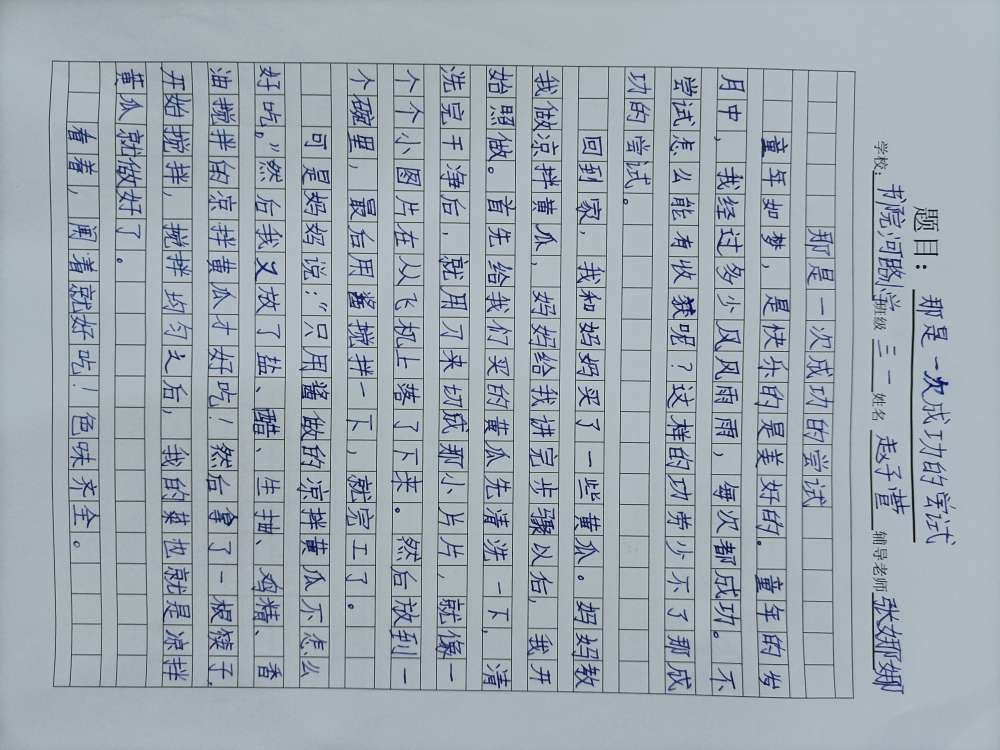 题目：那是一次成功的尝试
学校：书院河路小学班级三一姓名赵子萱辅导老师张娜娜
那是一次成功的尝试
童年如梦，是快乐的是美好的。童年的岁
月中，我经过多少风风雨雨，每次都成功。不
尝试怎么能有收获呢？这样的功劳少不了那成
功的尝试。
回到家，我和妈妈买了一些黄瓜。妈妈教
我做凉拌黄瓜，妈妈给我讲完步骤以后，我开
始照做。首先给我们买的黄瓜先清洗一下，清
洗完干净后，就用刀来切成那小片片，就像一
个个小圆片在从飞机上落了下来。然后放到一
个碗里，最后用酱搅拌一下，就完工了。
可是妈妈说：“只用酱做的凉拌黄瓜不怎么
好吃。”然后我又放了盐、醋、生抽、鸡精、香
油搅拌的凉拌黄瓜才好吃！然后拿了一根筷子，
开始搅拌，搅拌均匀之后，我的菜也就是凉拌
黄瓜就做好了。
看着，闻着就好吃！色味齐全。